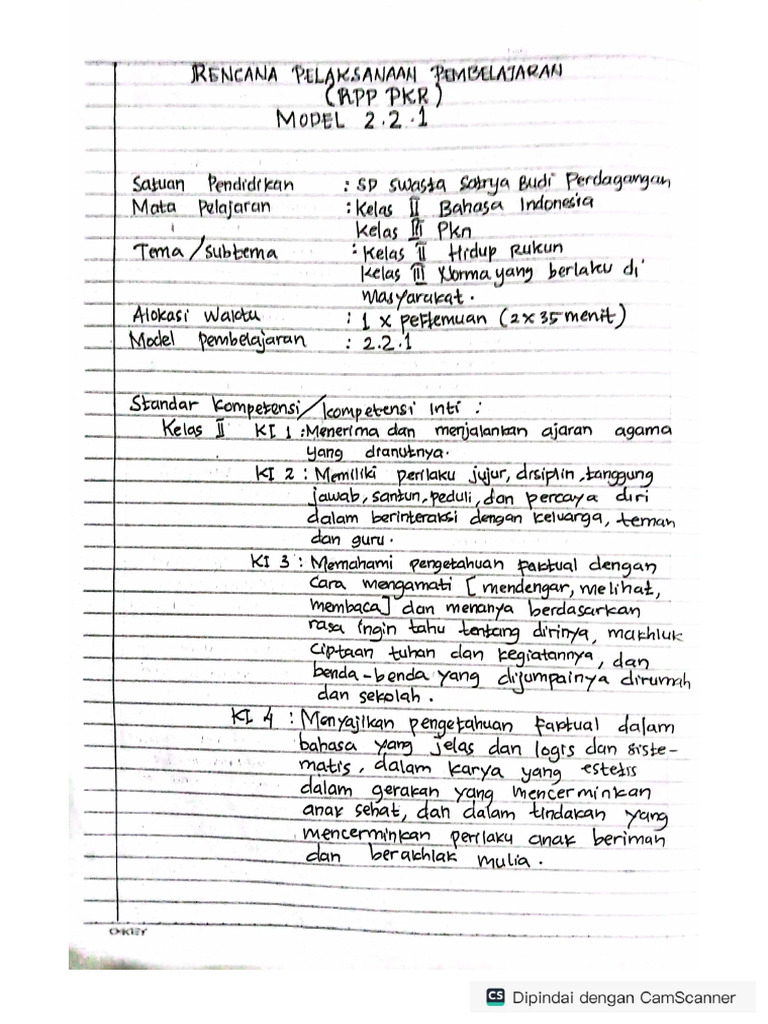 RENCANA PELAKSANAAN PEMBELAJARAN
(RPP PKR)
MODEL 2.2.1
Satuan Pendidikan : SD Swasta Satrya Budi Perdagangan
Mata Pelajaran : Kelas II Bahasa Indonesia
Kelas III Pkn
Tema/Subtema : Kelas II Hidup Rukun
Kelas III Norma yang berlaku di
Masyarakat.
Alokasi Waktu : 1 x pertemuan (2 x 35 menit)
Model pembelajaran : 2.2.1
Standar Kompetensi/kompetensi Inti :
Kelas II KI 1 : Menerima dan menjalankan ajaran agama
yang dianutnya.
KI 2 : Memiliki perilaku jujur, disiplin, tanggung
jawab, santun, peduli, dan percaya diri
dalam berinteraksi dengan keluarga, teman
dan guru.
KI 3 : Memahami pengetahuan faktual dengan
cara mengamati [mendengar, melihat,
membaca] dan menanya berdasarkan
rasa ingin tahu tentang dirinya, makhluk
ciptaan tuhan dan kegiatannya, dan
benda-benda yang dijumpainya dirumah
dan sekolah.
KI 4 : Menyajikan pengetahuan faktual dalam
bahasa yang jelas dan logis dan siste-
matis, dalam karya yang estetis
dalam gerakan yang mencerminkan
anak sehat, dan dalam tindakan yang
mencerminkan perilaku anak beriman
dan berakhlak mulia.
OKEY
CS Dipindai dengan CamScanner